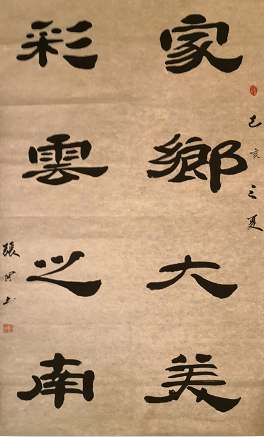 己亥之夏
家鄉大美
彩雲之南
張